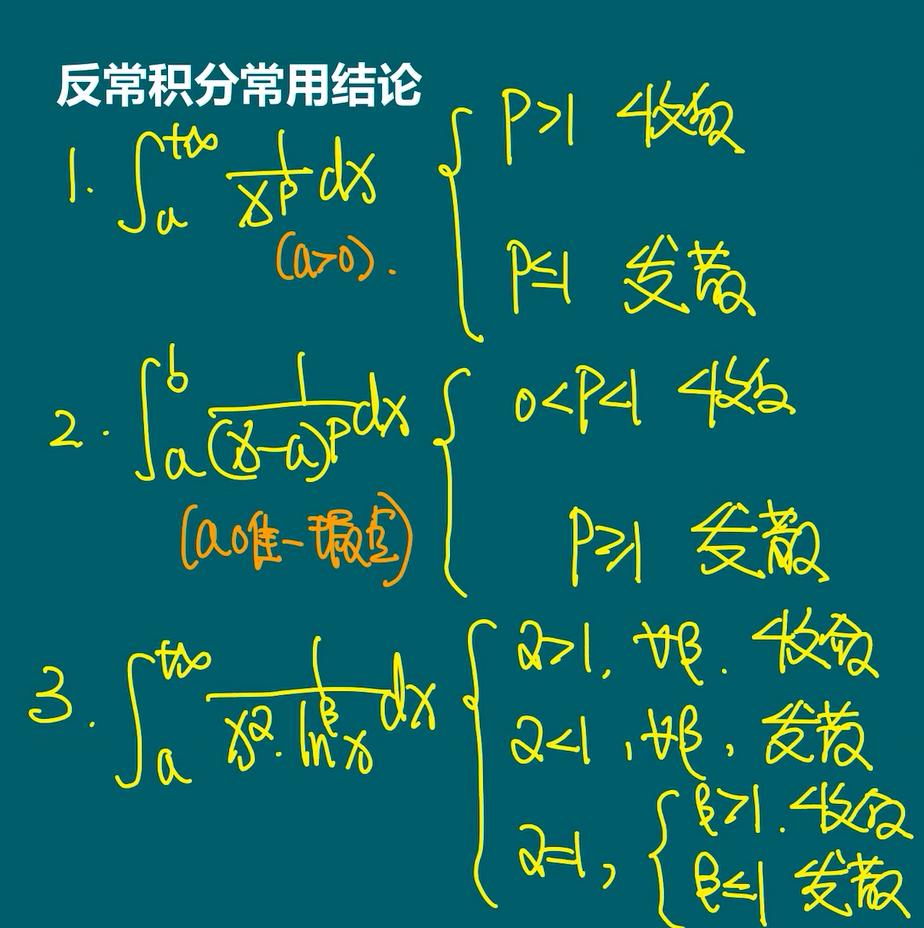 反常积分常用结论
1. ∫_a^{+∞} 1/x^p dx { p>1 收敛
(a>0).
p≤1 发散
2. ∫_a^b 1/(x-a)^p dx { 0<p<1 收敛
(a唯一瑕点)
p≥1 发散
3. ∫_a^{+∞} 1/(x^α·ln^β x) dx { α>1, ∀β. 收敛
α<1, ∀β, 发散
α=1, { β>1. 收敛
β≤1 发散